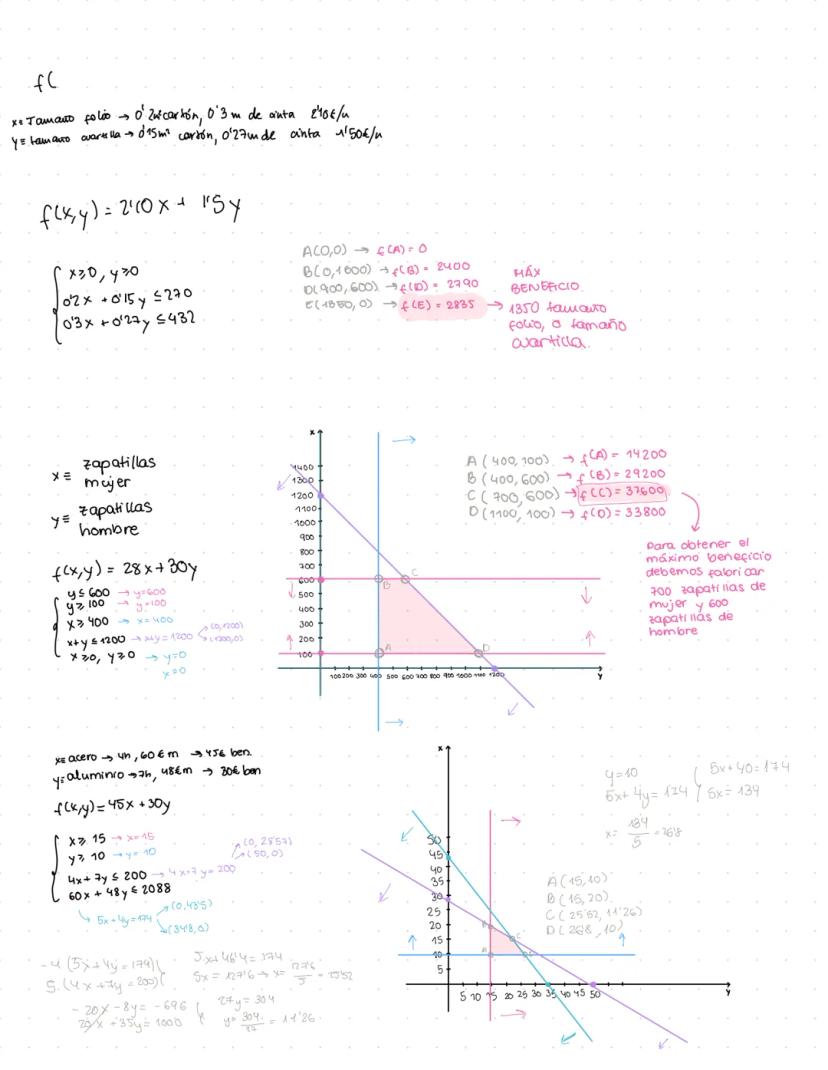 f(
x≡ Tamaño folio → 0'2m² cartón, 0'3 m de cinta 2'10€/u
y≡ tamaño cuartilla → 0'15m² cartón, 0'27m de cinta 1'50€/u
f(x,y) = 2'10x + 1'5y
x≥0, y≥0
0'2x + 0'15y ≤ 270
0'3x + 0'27y ≤ 432
A(0,0) → f(A) = 0
B(0,1600) → f(B) = 2400
D(900,600) → f(D) = 2790
E(1350,0) → f(E) = 2835
MÁX
BENEFICIO
→ 1350 tamaño
folio, 0 tamaño
cuartilla.
x≡ zapatillas
mujer
y≡ zapatillas
hombre
f(x,y) = 28x+30y
y≤600 → y=600
y≥100 → y=100
x≥400 → x=400
x+y≤1200 → x+y=1200 (0,1200)
(1200,0)
x≥0, y≥0 → y=0
x=0
x
1400
1300
1200
1100
1000
900
800
700
600
500
400
300
200
100
A
B
C
D
100 200 300 400 500 600 700 800 900 1000 1100 1200
y
A(400,100) → f(A) = 14200
B(400,600) → f(B) = 29200
C(700,600) → f(C) = 37600
D(1100,100) → f(D) = 33800
Para obtener el
máximo beneficio
debemos fabricar
700 zapatillas de
mujer y 600
zapatillas de
hombre
x≡ acero → 4h, 60€m → 45€ ben.
y≡ aluminio → 7h, 48€m → 30€ ben
f(x,y) = 45x + 30y
x≥15 → x=15
y≥10 → y=10
4x+7y ≤ 200 → 4x+7y=200
(0,28'57)
(50,0)
60x + 48y ≤ 2088
5x+4y=174
(0,43'5)
(34'8,0)
-4(5x+4y=174)
5.(4x+7y=200)
-20x-8y=-696
20x+35y=1000
5x+46'4=174
5x=127'6 → x=
27y=304
y= 304 = 11'26
x
50
45
40
35
30
25
20
15
10
5
A
B
C
5 10 15 20 25 30 35 40 45 50
y
A(15,10)
B(15,20)
C(25'52, 11'26)
D(26'8, 10)
y=10
5x+4y=174
5x+40=174
5x=134
x= 134/5 = 26'8